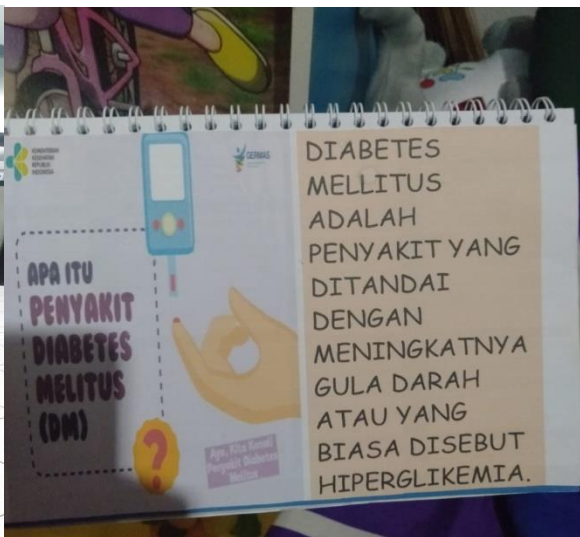 KEMENTERIAN
KESEHATAN
REPUBLIK
INDONESIA
GERMAS
APA ITU
PENYAKIT
DIABETES
MELITUS
(DM)
?
Ayo, Kita Kenali
Penyakit Diabetes
Melitus
DIABETES
MELLITUS
ADALAH
PENYAKIT YANG
DITANDAI
DENGAN
MENINGKATNYA
GULA DARAH
ATAU YANG
BIASA DISEBUT
HIPERGLIKEMIA.